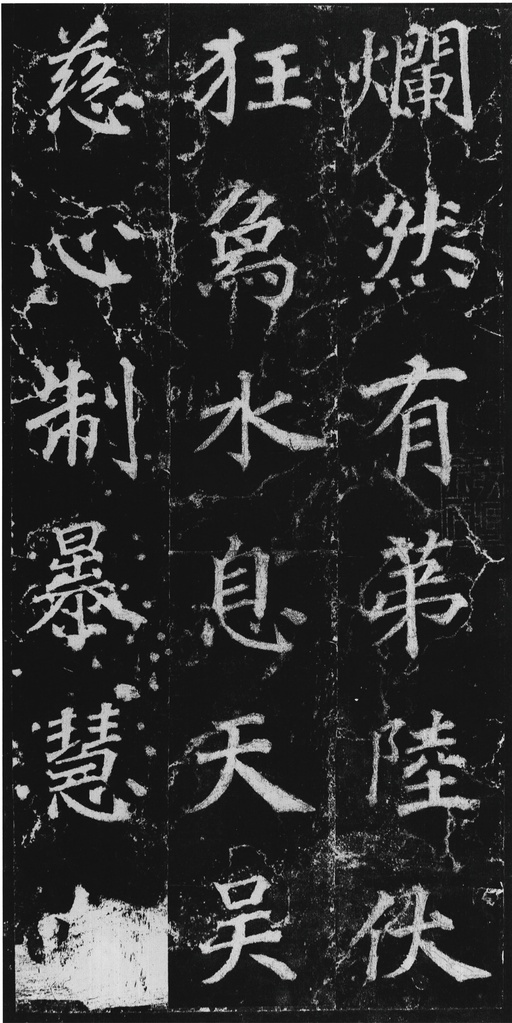 爛然有第陸伏
狂烏水息天吴
慈心制暴慧